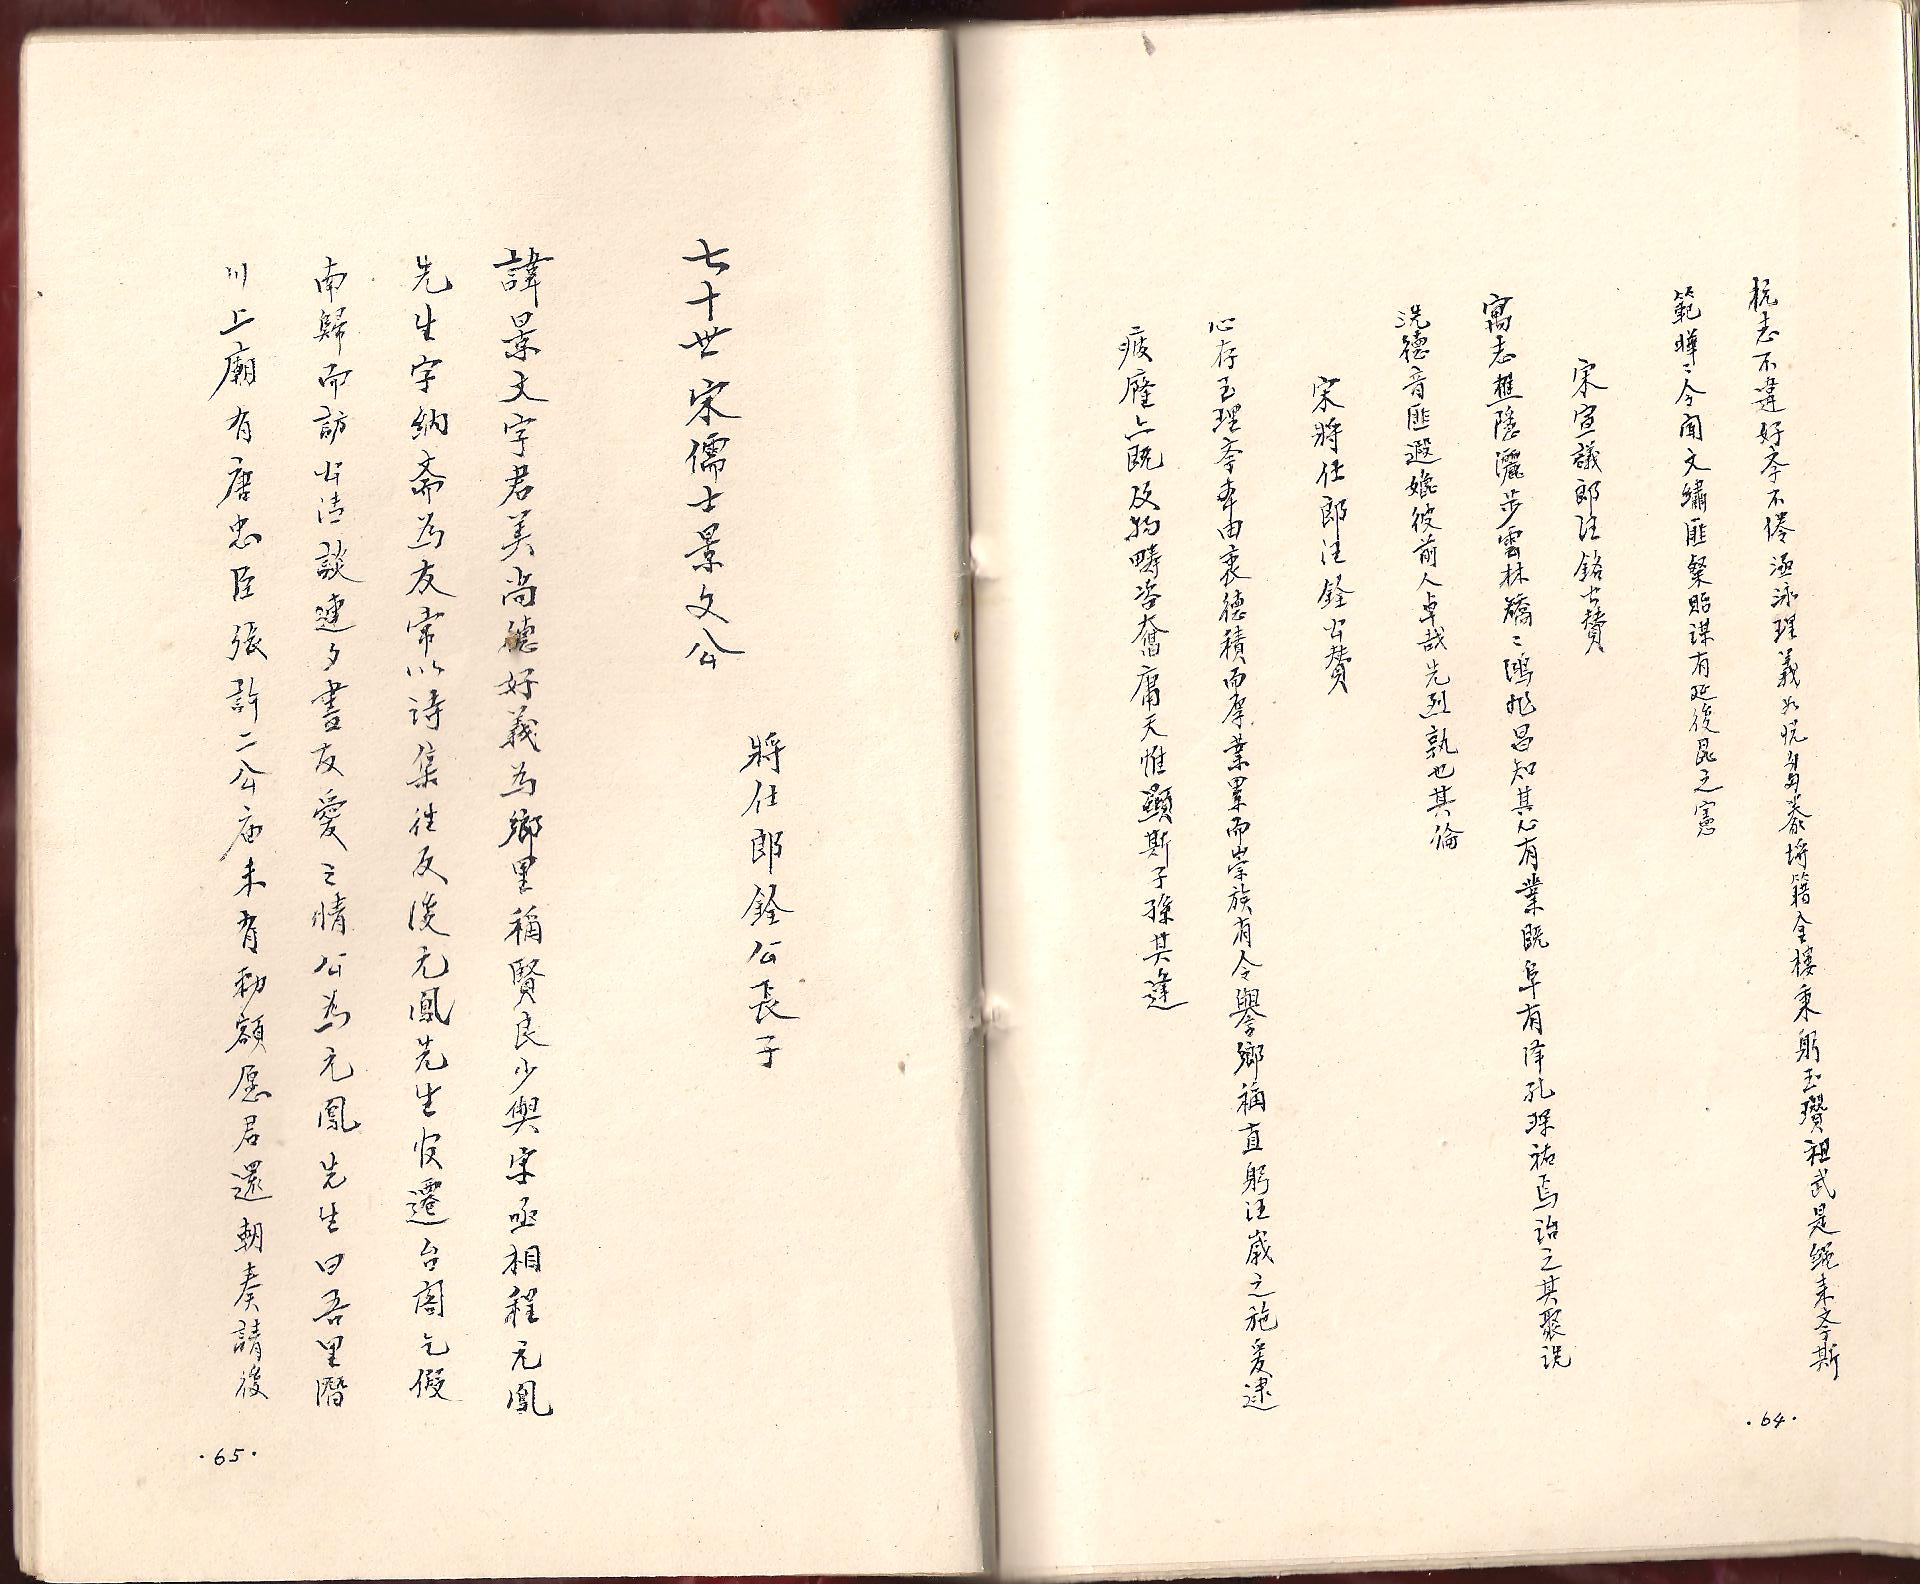 抗志不違好李不倦涵泳理義如悅芻豢埓籍金樓秉躬玉瓚祖武是繩來李斯
範曄〻今聞文繡匪粲貽謀有延後昆之憲
宋宣議郎汪鉻公贊
寓志樵隱灑步雲林矯〻鴻兆昌知其心有業既阜有澤孔深祐焉詒之其聚詵
洗德音匪遐媲彼前人卓哉先烈孰也其倫
宋將仕郎汪銓公贊
心存至理李奉由衷德積而厚業累而崇族有令譽鄉稱直躬汪嵗之施爰逮
疲癃上既及物疇咨奮庸天惟顯斯子孫其逢
·64·
七十世宋儒士景文公
將仕郎銓公長子
諱景文字君美尚德好義為鄉里稱賢良少與宋丞相程元鳳
先生字納斋為友常以詩集往反後元鳳先生官遷台閣乞假
南歸而訪公清談連夕晝友愛之情公為元鳳先生曰吾里潛
川上廟有唐忠臣張許二公庙未有勅額愿君還朝奏請後
·65·